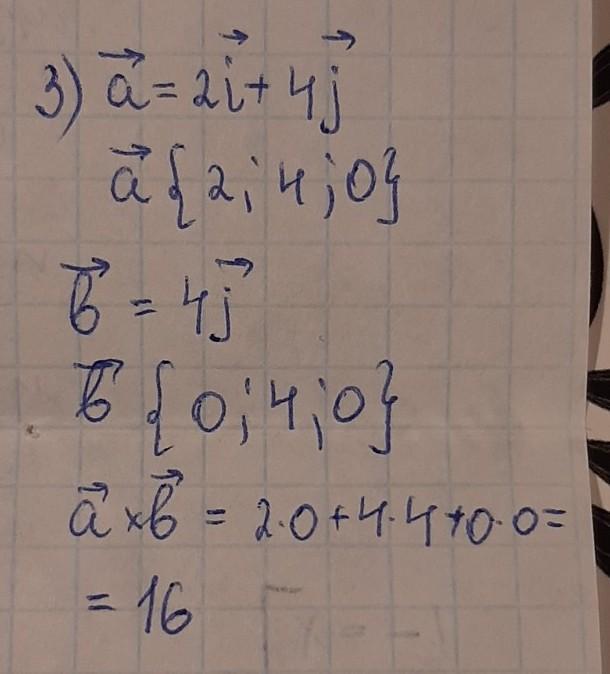 3) a⃗ = 2i⃗ + 4j⃗
a⃗ {2; 4; 0}
b⃗ = 4j⃗
b⃗ {0; 4; 0}
a⃗ × b⃗ = 2·0 + 4·4 + 0·0 =
= 16